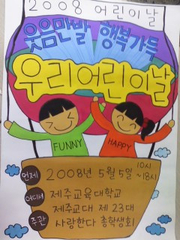 2008 어린이날
웃음만발 행복가득
우리어린이날
FUNNY HAPPY
언제 2008년 5월 5일 10시~18시
어디서 제주교육대학교
주관 제주교대 제23대
사랑한다 총학생회